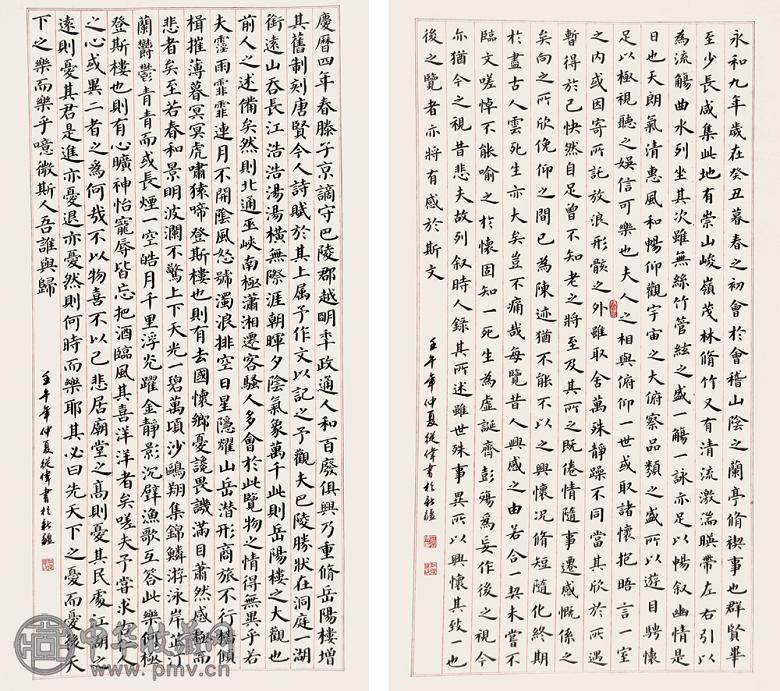 永和九年歲在癸丑暮春之初會於會稽山陰之蘭亭脩禊事也群賢畢
至少長咸集此地有崇山峻嶺茂林脩竹又有清流激湍暎帶左右引以
為流觴曲水列坐其次雖無絲竹管絃之盛一觴一詠亦足以暢叙幽情是
日也天朗氣清惠風和暢仰觀宇宙之大俯察品類之盛所以遊目騁懷
足以極視聽之娛信可樂也夫人之相與俯仰一世或取諸懷抱晤言一室
之內或因寄所託放浪形骸之外雖取舍萬殊靜躁不同當其欣於所遇
暫得於己快然自足曾不知老之將至及其所之既倦情隨事遷感慨係之
矣向之所欣俛仰之間已為陳迹猶不能不以之興懷況脩短隨化終期
於盡古人雲死生亦大矣豈不痛哉每覽昔人興感之由若合一契未嘗不
臨文嗟悼不能喻之於懷固知一死生為虛誕齊彭殤為妄作後之視今
亦猶今之視昔悲夫故列叙時人錄其所述雖世殊事異所以興懷其致一也
後之覽者亦將有感於斯文
壬午年仲夏從偉書於
慶曆四年春滕子京謫守巴陵郡越明年政通人和百廢俱興乃重脩岳陽樓增
其舊制刻唐賢今人詩賦於其上属予作文以記之予觀夫巴陵勝狀在洞庭一湖
銜遠山吞長江浩浩湯湯橫無際涯朝暉夕陰氣象萬千此則岳陽樓之大觀也
前人之述備矣然則北通巫峽南極瀟湘遷客騷人多會於此覽物之情得無異乎若
夫霪雨霏霏連月不開陰風怒號濁浪排空日星隱耀山岳潛形商旅不行檣傾
楫摧薄暮冥冥虎嘯猿啼登斯樓也則有去國懷鄉憂讒畏譏滿目蕭然感極而
悲者矣至若春和景明波瀾不驚上下天光一碧萬頃沙鷗翔集錦鱗游泳岸芷汀
蘭鬱鬱青青而或長煙一空皓月千里浮光躍金靜影沉璧漁歌互答此樂何極
登斯樓也則有心曠神怡寵辱皆忘把酒臨風其喜洋洋者矣嗟夫予嘗求古仁人
之心或異二者之為何哉不以物喜不以己悲居廟堂之高則憂其民處江湖之
遠則憂其君是進亦憂退亦憂然則何時而樂耶其必曰先天下之憂而憂後天
下之樂而樂乎噫微斯人吾誰與歸
壬午年仲夏從偉書於
中华收藏网
www.pmv.cn